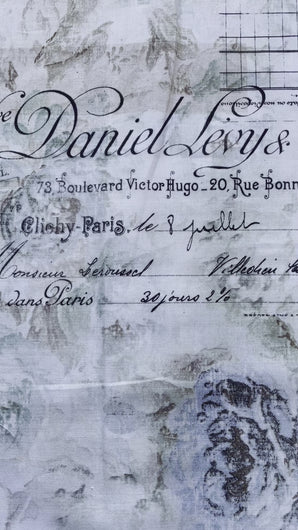 Daniel Lévy &
73, Boulevard Victor Hugo - 20, Rue Bonn
Clichy-Paris, le 8 juillet
Monsieur Leroussel Villedieu
dans Paris 30 jours 2%